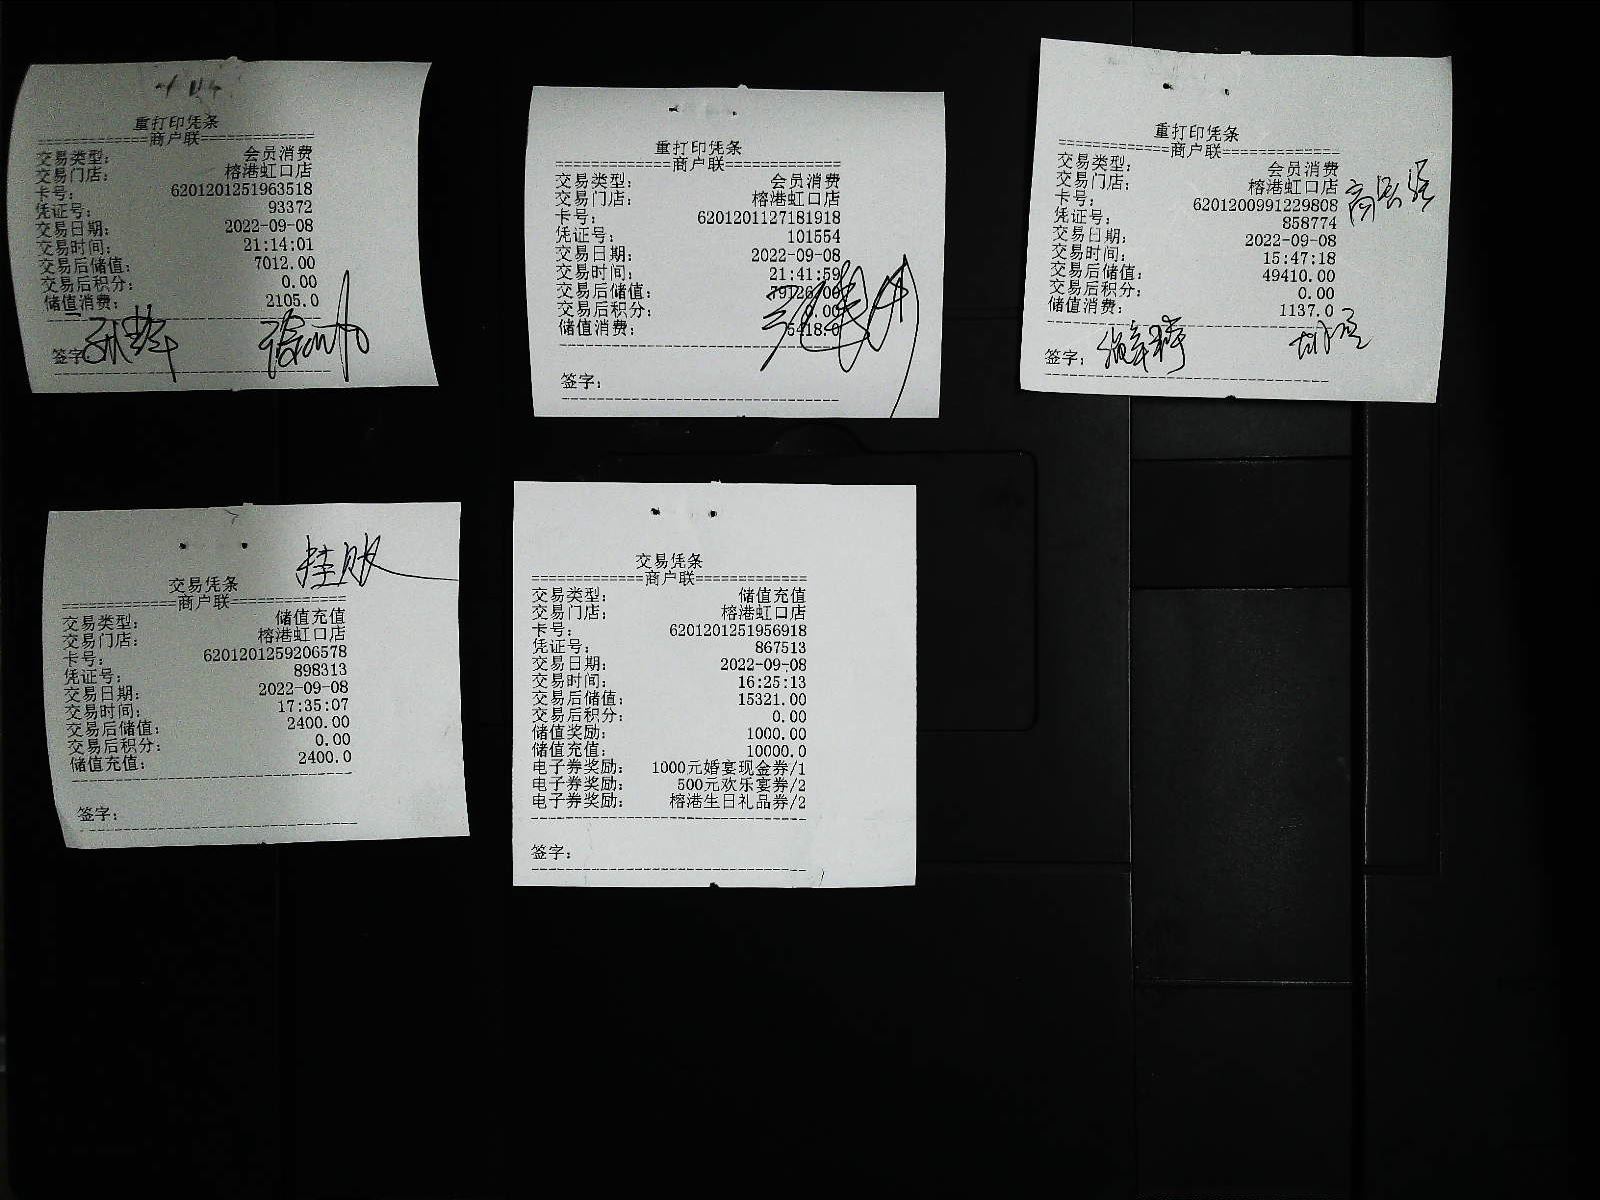 重打印凭条
=============商户联=============
交易类型: 会员消费
交易门店: 榕港虹口店
卡号: 6201201251963518
凭证号: 93372
交易日期: 2022-09-08
交易时间: 21:14:01
交易后储值: 7012.00
交易后积分: 0.00
储值消费: 2105.0
签字
重打印凭条
=============商户联=============
交易类型: 会员消费
交易门店: 榕港虹口店
卡号: 6201201127181918
凭证号: 101554
交易日期: 2022-09-08
交易时间: 21:41:59
交易后储值: 79126.00
交易后积分: 0.00
储值消费: 5418.0
签字:
重打印凭条
=============商户联=============
交易类型: 会员消费
交易门店: 榕港虹口店
卡号: 6201200991229808
凭证号: 858774
交易日期: 2022-09-08
交易时间: 15:47:18
交易后储值: 49410.00
交易后积分: 0.00
储值消费: 1137.0
签字:
挂账
交易凭条
=============商户联=============
交易类型: 储值充值
交易门店: 榕港虹口店
卡号: 6201201259206578
凭证号: 898313
交易日期: 2022-09-08
交易时间: 17:35:07
交易后储值: 2400.00
交易后积分: 0.00
储值充值: 2400.0
签字:
交易凭条
=============商户联=============
交易类型: 储值充值
交易门店: 榕港虹口店
卡号: 6201201251956918
凭证号: 867513
交易日期: 2022-09-08
交易时间: 16:25:13
交易后储值: 15321.00
交易后积分: 0.00
储值奖励: 1000.00
储值充值: 10000.0
电子券奖励: 1000元婚宴现金券/1
电子券奖励: 500元欢乐宴券/2
电子券奖励: 榕港生日礼品券/2
签字: